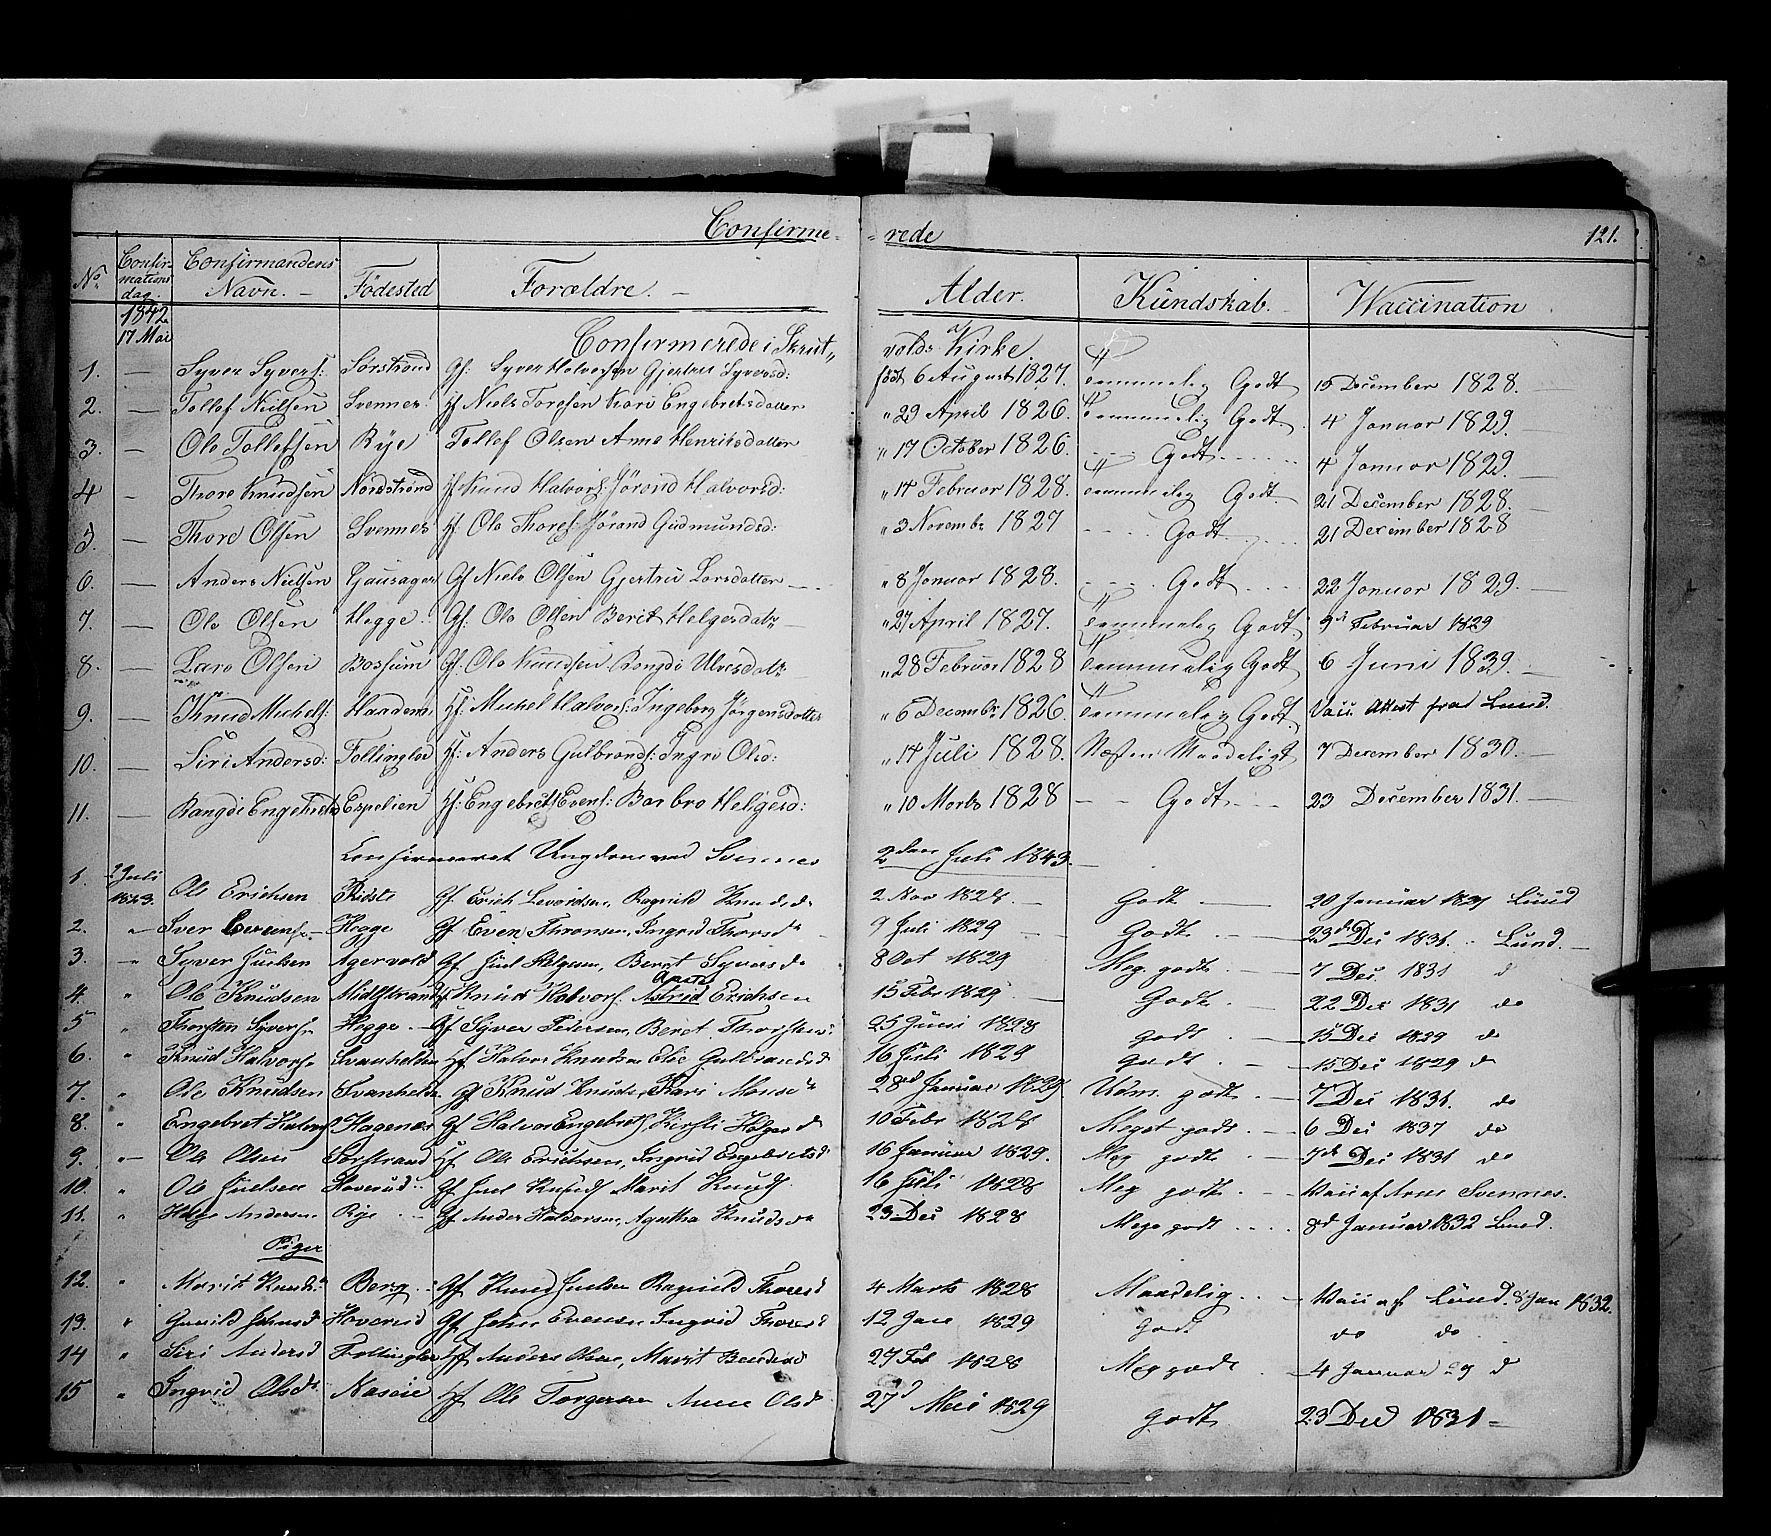 Confirme- -rede 121.
No. Confirmations dag. Confirmandens Navn. Födested Forældre. Alder. Kundskab. Vaccination
1842
17 Mai Confirmerede i Skrut„ volds Kirke.
1. — Syver Syvers: Sørstrand Gf: Syver Halvorsen Gjertru Syversd: född 6 August 1827. Temmelig Godt 15 December 1828.
2. — Tollef Nielsen Svennes Hf Niels Toresen Kari Engebretsdatter " 29 April 1826. Temmelig Godt. 4 Januar 1829.
3. — Ole Tollefsen Rye Tollef Olsen Anne Henriksdatter " 17 October 1826. Godt 4 Januar 1829.
4 — Thore Knudsen Nordstrand Hf Knud Halvors: Jørand Halvorsd: " 14 Februar 1828. Temmelig Godt 21 December 1828.
5. — Thore Olsen Svennes Hf. Ole Thores: Jørand Gudmundsd: " 3 Novembr 1827 Godt 21 December 1828
6. — Anders Nielsen Gausager Gf Niels Olsen Gjertru Larsdatter " 8 Januar 1828. Godt 22 Januar 1829.
7. — Ole Olsen Hegge Gf: Ole Olsen Berit Helgesdatr " 27 April 1827. Temmelig Godt 9de Februar 1829
8. — Lars Olsen Gf. Ole Knudsen Rangdi Ulvesdatr " 28 Februar 1828 Temmelig Godt 6 Juni 1839.
9. — Knud Michels: Haadem Hf: Michel Halvors: Ingeborg Jörgensdatter " 6 Decembr 1826. Temmelig Godt Vacc. Attest fra Lund.
10. — Siri Andersd: Follinglo Hf: Anders Gulbrands: Ingri Olsd: " 14 Juli 1828. Næsten Maadeligt 7 December 1830.
11. — Rangdi Engebretsd Espelien Hf: Engebret Evens: Barbro Helgesd: " 10 Marts 1828 Godt 23 December 1831.
Confirmeret Ungdom ved Svennes 2den Juli 1843.
1. 2 Juli 1843. Ole Erichsen Ridste Gf Erich Levordsen, Ragnild Knudsd. 2 Nov 1828 Godt 20 Januar 1831 Lund
2. " Iver Evens. Hegge Gf Even Thronsen, Ingrid Thorsdr 9 Juli 1829 Godt 23de Dec 1831. Lund.
3. " Syver Juelsen Agervold Gf Juel Helgesen, Beret Syversd 8 Oct 1829 Meg. godt 7 Dec. 1831 d
4. " Ole Knudsen Midtstrand Gf Knud Halvors. Astrid Erichsen 15 Febr 1829 Godt 22 Dec 1831 do
5 " Thorsten Syvers. Hegge Gf Syver Pedersen, Beret Thorstens. 25 Juni 1828 godt 15 Dec 1829 d
6. " Knud Halvors. Svanhelden Hf Halvor Knudsen Eli Gulbrandsd 16 Juli 1829 Godt 15 Dec 1829 d
7. " Ole Knudsen Svanhelde Gf Knud Knuds., Kari Monsdr 28de Januar 1829. Udm. godt 7 Dec 1831. do
8. " Engebret Halvors. Hagenes Gf Halvor Engebrets. Kirsti Helgesd 10 Febr 1828 Meget godt 6 Dec 1837 do
9. " Ole Olsen Sørstrand Hf Ole Erichsen, Ingrid Engebretsd 16 Januar 1829. Meg godt 7de Dec 1831 do
10. " Ole Juelsen Haverud Gf Juel Knuds. Marit Knuds. 16 Juli 1828 Meg godt Vacc af Arne Svennes.
11. " Helge Andersen Rye Gf Ander Haldorsen, Agatha Knudsdr 23 Dec 1828 Mege godt 8d Januar 1832 Lund.
Piger
12. " Marit Knudsdr Berg Gf Knud Juelsen Ragnild Thoresd 4 Marts 1828 Maadelig Vacc af Lund. 8 Jan 1832.
13. " Gunild Johnsd Haverud Gf John Evensen Ingrid Thoresd 12 Jan 1829 Godt do do
14 " Siri Andersd Follinglo Hf Anders Olsen, Marit 27 Feb 1828 Meg godt 4 Januar 29 d
15 " Ingrid Olsdr Hf Ole Torgersen Anne Olsd 27d Mai 1829 Godt 23 Ded 1831